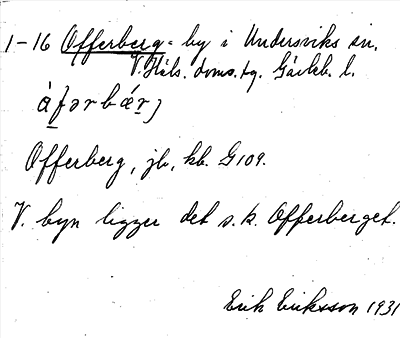 1-16 Offerberg - by i Undersviks sn,
V. Häls. doms. tg. Gävleb. l.
áfərbǽrj
Offerberg, jb, kb. G109.
V. byn ligger det s.k. Offerberget.
Erik Eriksson 1931